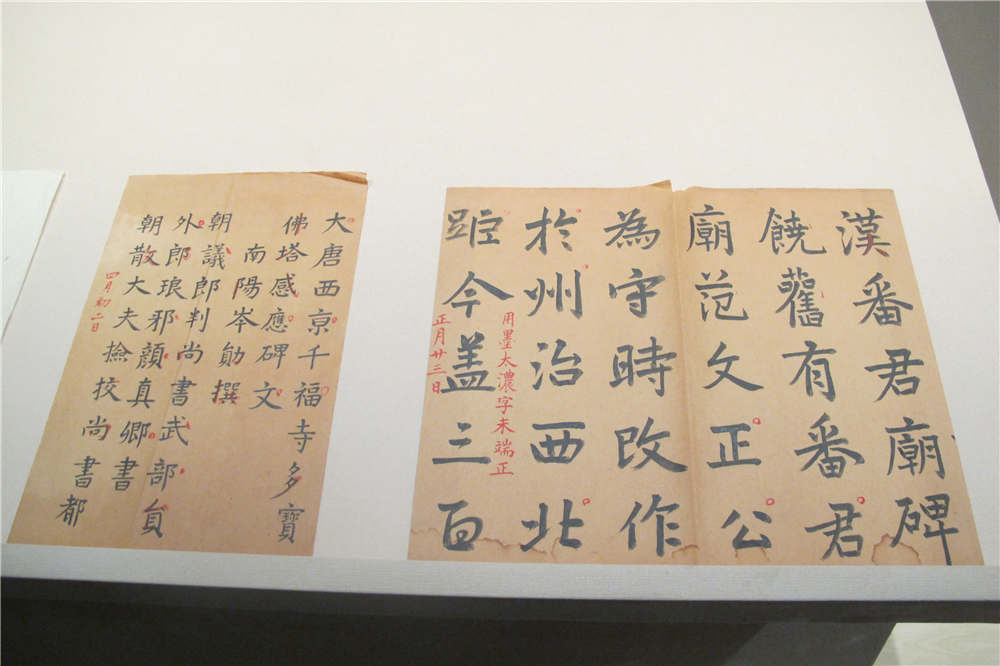 漢番君廟碑
饒舊有番君
廟范文正公
為守時改作
於州治西北
距今盖三百
用墨太濃字未端正
正月廿三日
大唐西亰千福寺多寶
佛塔感應碑文
南陽岑勛撰
朝議郎判尚書武部貟
外郎琅邪顏真卿書
朝散大夫撿挍尚書都
四月初二日